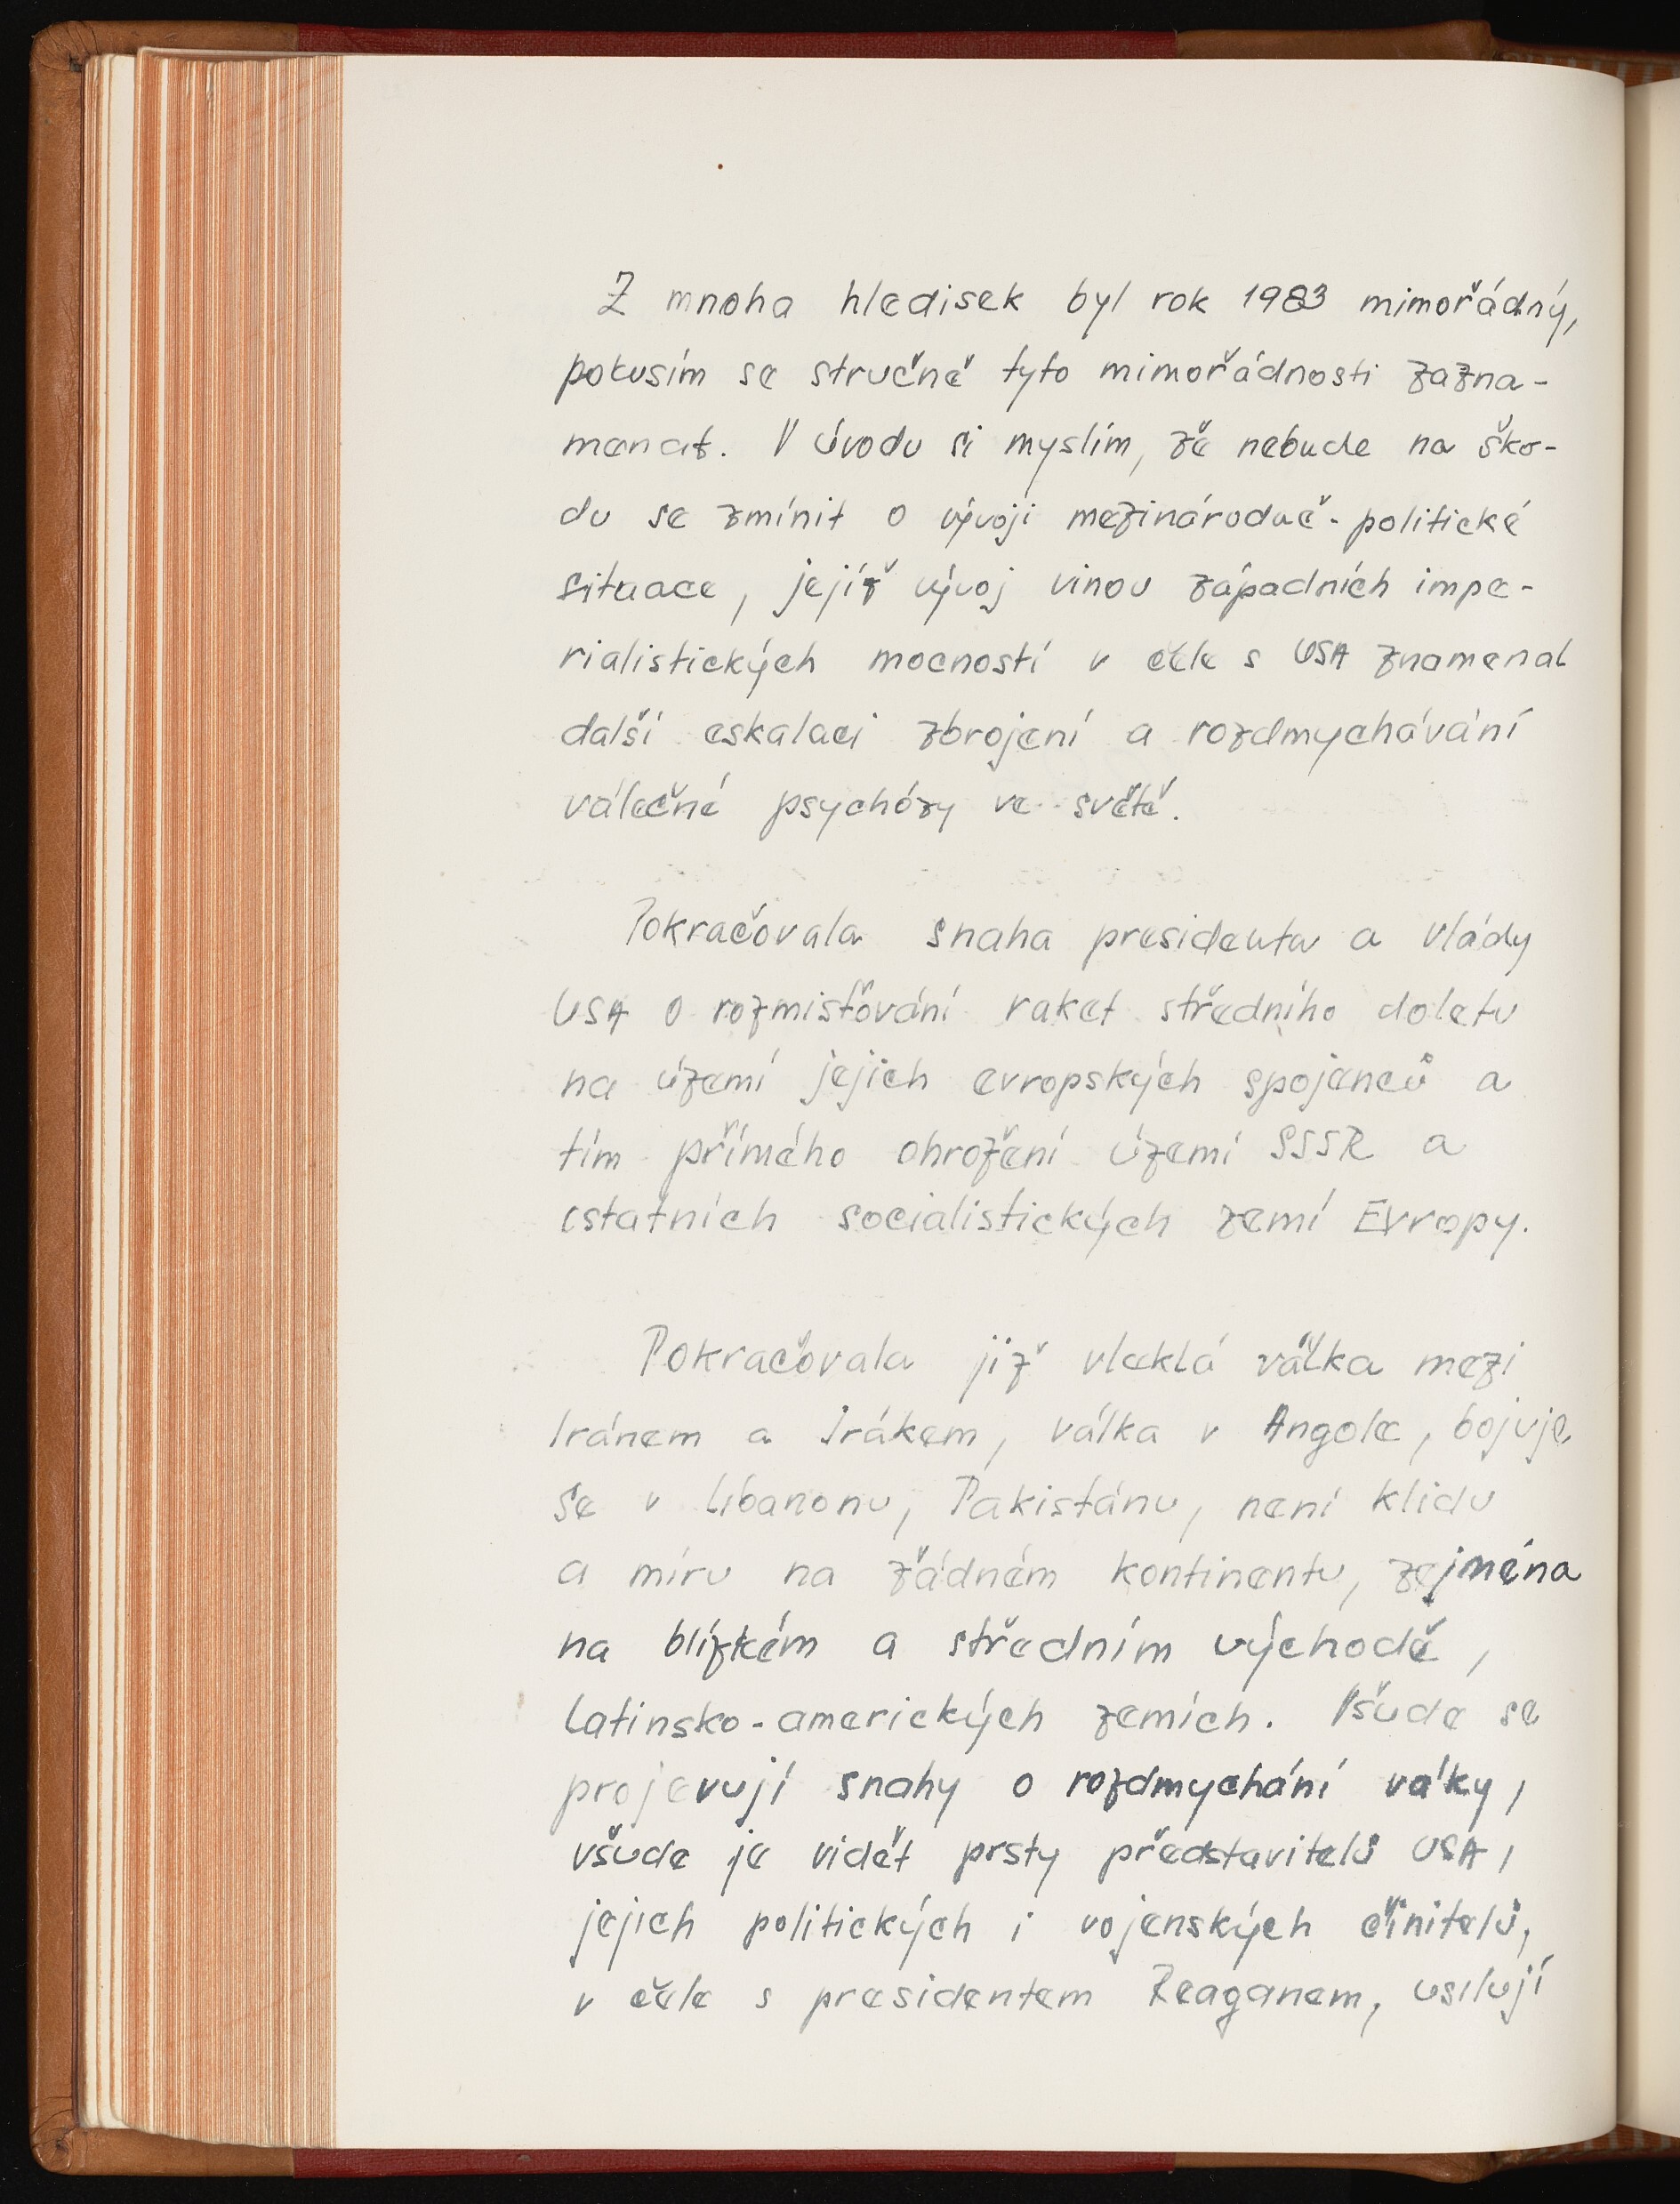 Z mnoha hledisek byl rok 1983 mimořádný,
pokusím se stručně tyto mimořádnosti zazna-
menat. V úvodu si myslím, že nebude na ško-
du se zmínit o vývoji mezinárodně-politické
situace, jejíž vývoj vinou západních impe-
rialistických mocností v čele s USA znamenal
další eskalaci zbrojení a rozdmychávání
válečné psychózy ve světě.
Pokračovala snaha presidenta a vlády
USA o rozmisťování raket středního doletu
na území jejich evropských spojenců a
tím přímého ohrožení území SSSR a
ostatních socialistických zemí Evropy.
Pokračovala již vleklá válka mezi
Iránem a Irákem, válka v Angole, bojuje
se v Libanonu, Pakistánu, není klidu
a míru na žádném kontinentu, zejména
na blízkém a středním východě,
Latinsko-amerických zemích. Všude se
projevují snahy o rozdmychání váky,
všude je vidět prsty představitelů USA,
jejich politických i vojenských činitelů,
v čele s presidentem Reaganem, usilují